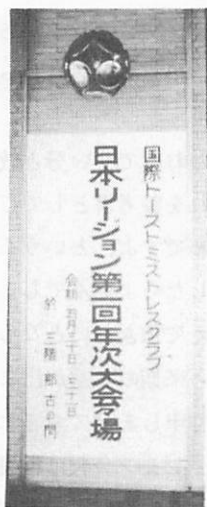 国際トーストミストレスクラブ
日本リージョン第一回年次大会々場
会期 五月三十日 三十一日
於 三階 都古の間